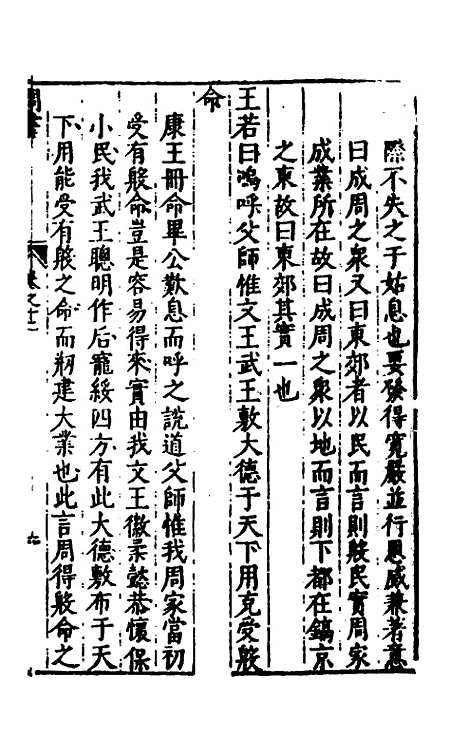 際不失之于姑息也要發得寛嚴並行恩威兼著意
曰成周之衆又曰東郊者以民而言則殷民實周家
成業所在故曰成周之衆以地而言則下都在鎬京
之東故曰東郊其實一也
王若曰嗚呼父師惟文王武王敷大德于天下用克受殷
命
康王冊命畢公歎息而呼之說道父師惟我周家當初
受有殷命豈是容易得來實由我文王徽柔懿恭懷保
小民我武王聰明作后寵綏四方有此大德敷布于天
下用能受有殷之命而刱建大業也此言周得殷命之
卷之十二
九